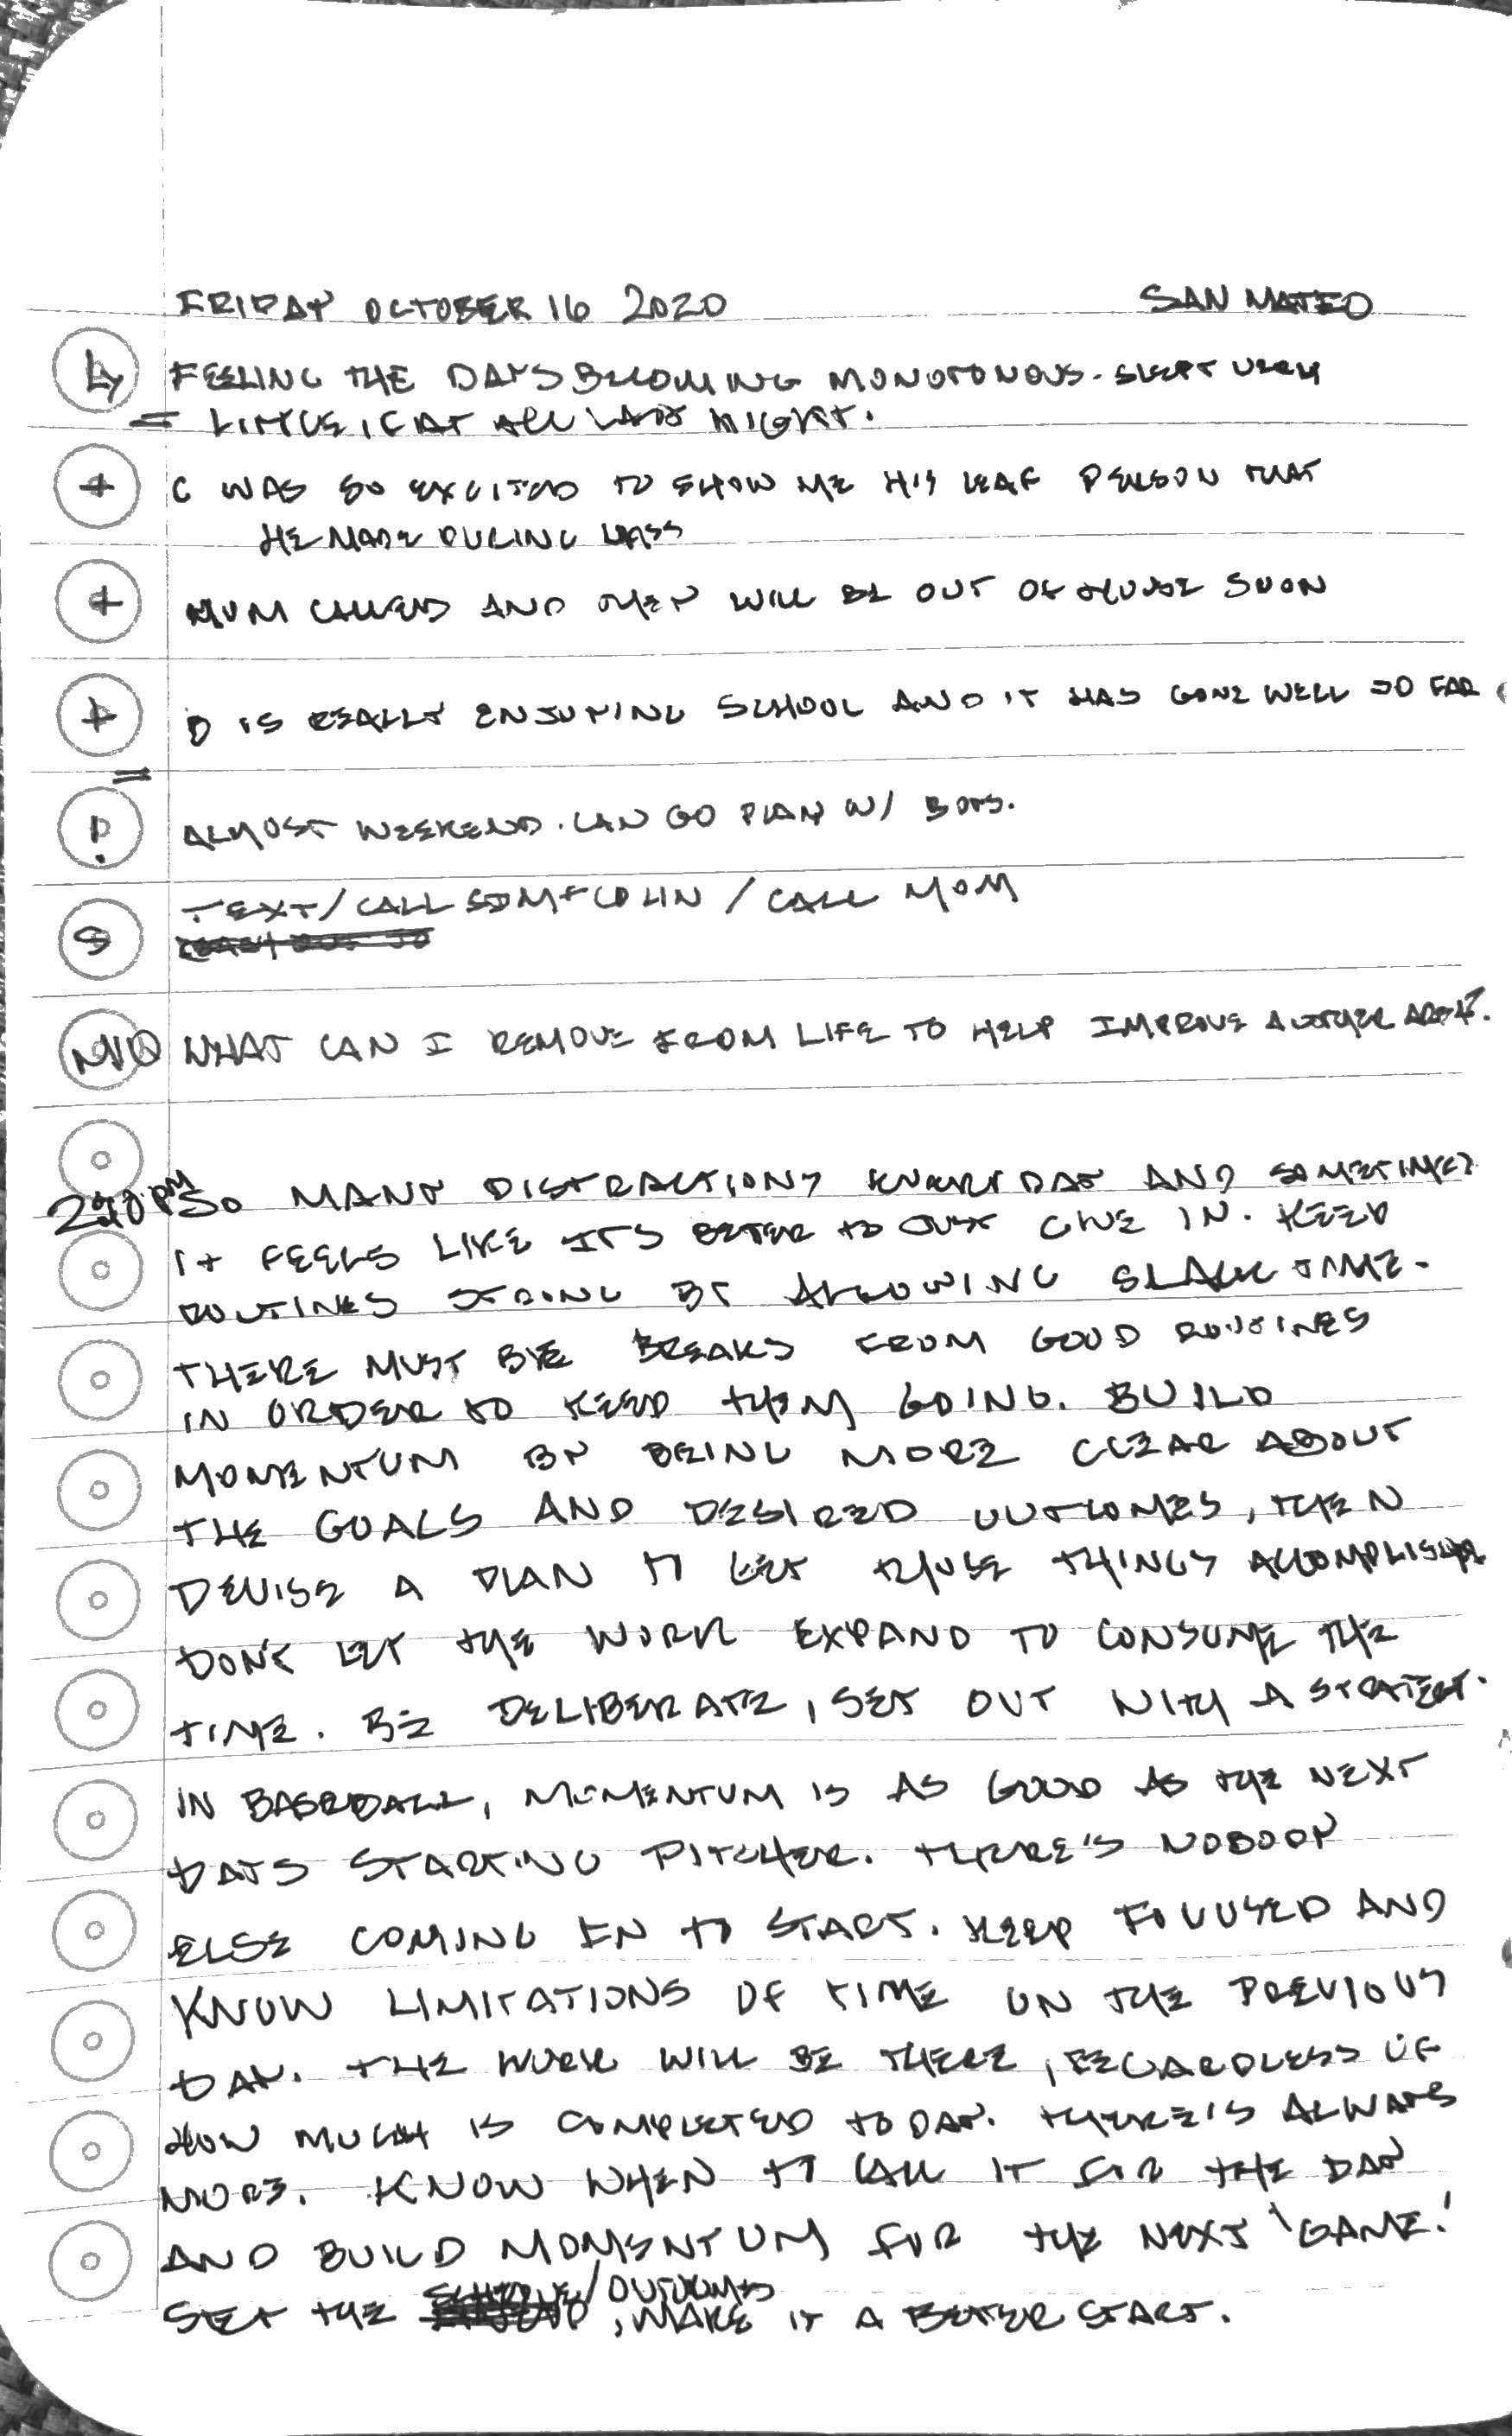 FRIDAY OCTOBER 16 2020 SAN MATEO
LY FEELING THE DAYS BECOMING MONOTONOUS. SLEPT VERY
= LITTLE IF AT ALL LAST NIGHT.
+ C WAS SO EXCITED TO SHOW ME HIS LEAF PERSON THAT
HE MADE DURING CLASS
+ MUM CALLED AND THEY WILL BE OUT OF HOUSE SOON
+ D IS REALLY ENJOYING SCHOOL AND IT HAS GONE WELL SO FAR
=
P. ALMOST WEEKEND. CAN GO PLAY W/ BOYS.
TEXT/CALL COLIN / CALL MOM
S
NVQ WHAT CAN I REMOVE FROM LIFE TO HELP IMPROVE ANOTHER AREA?
PM SO MANY DISTRACTIONS EVERY DAY AND SOMETIMES
IT FEELS LIKE ITS BETTER TO JUST GIVE IN. KEEP
ROUTINES STRONG BY ALLOWING SLACK TIME.
THERE MUST BE BREAKS FROM GOOD ROUTINES
IN ORDER TO KEEP THEM GOING. BUILD
MOMENTUM BY BEING MORE CLEAR ABOUT
THE GOALS AND DESIRED OUTCOMES, THEN
DEVISE A PLAN TO GET THOSE THINGS ACCOMPLISHED
DON'T LET THE WORK EXPAND TO CONSUME THE
TIME. BE DELIBERATE, SET OUT WITH A STRATEGY.
IN BASEBALL, MOMENTUM IS AS GOOD AS THE NEXT
DAYS STARTING PITCHER. THERE'S NOBODY
ELSE COMING IN TO START. KEEP FOCUSED AND
KNOW LIMITATIONS OF TIME ON THE PREVIOUS
DAY. THE WORK WILL BE THERE, REGARDLESS OF
HOW MUCH IS COMPLETED TODAY. THERE'S ALWAYS
MORE. KNOW WHEN TO CALL IT FOR THE DAY
AND BUILD MOMENTUM FOR THE NEXT 'GAME.'
SET THE SCHEDULE/OUTCOMES, MAKE IT A BETTER START.